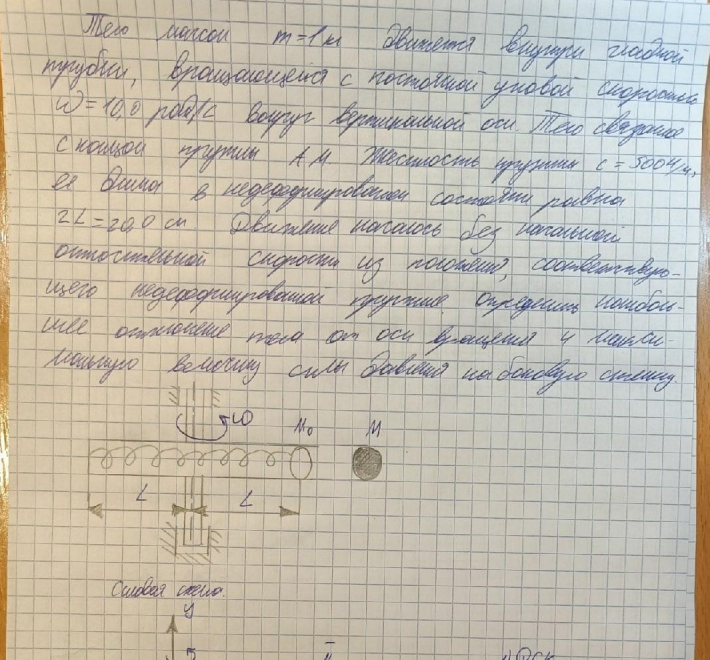 Тело массой m=1 кг движется внутри гладкой
трубки, вращающейся с постоянной угловой скоростью
ω=10,0 рад/с вокруг вертикальной оси. Тело связано
с концом пружины AM жесткость пружины c=500 Н/м,
ее длина в недеформированном состоянии равна
2L=20,0 см Движение началось без начальной
относительной скорости из положения, соответствую-
щего недеформированной пружине. Определить наиболь-
шее отклонение тела от оси вращения и макси-
мальную величину силы давления на боковую стенку.
ω M₀ M
L L
Силовая схема.
y